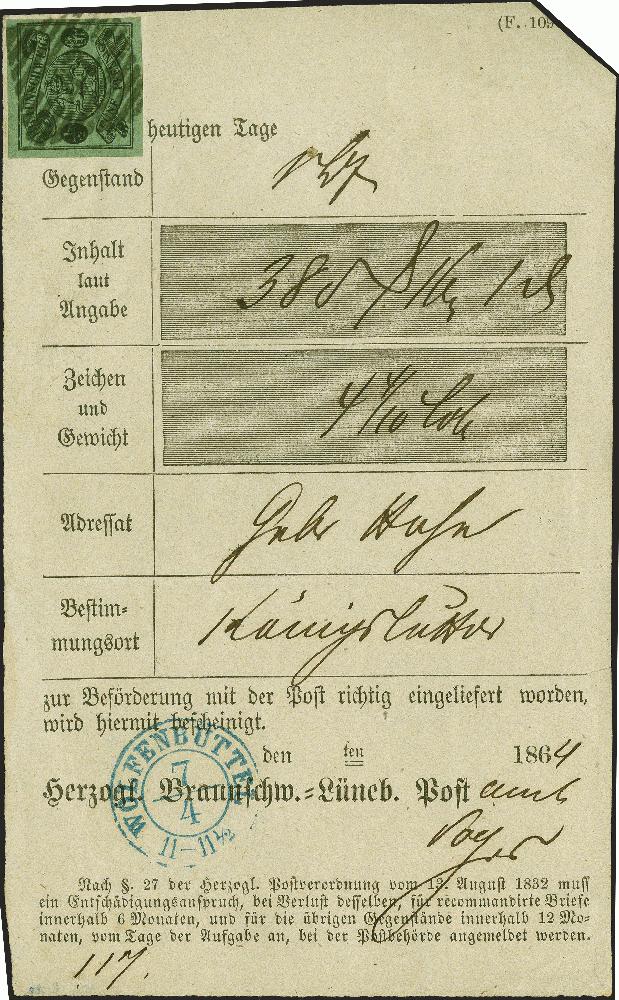 (F. 109
heutigen Tage
Gegenstand
Inhalt
laut
Angabe
380
Zeichen
und
Gewicht
4 4/10 Loth
Adressat
Gebr Hahn
Bestim-
mungsort
Königslutter
zur Beförderung mit der Post richtig eingeliefert worden,
wird hiermit bescheinigt.
den ten 1864
Herzogl. Braunschw.-Lüneb. Post amt
WOLFENBÜTTEL
7
4
11-11½
Nach §. 27 der Herzogl. Postverordnung vom 13. August 1832 muss
ein Entschädigungsanspruch, bei Verlust desselben, für recommandirte Briefe
innerhalb 6 Monaten, und für die übrigen Gegenstände innerhalb 12 Mo-
naten, vom Tage der Aufgabe an, bei der Postbehörde angemeldet werden.
117.